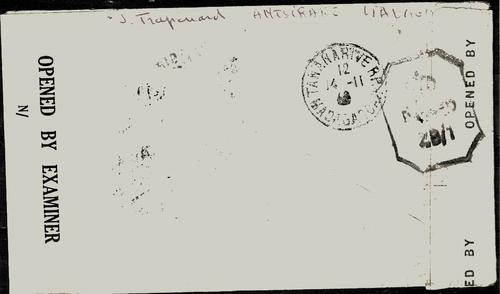 J. Trapenard ANTSIRANE
OPENED BY EXAMINER
N/
TANANARIVE R.P.
12
14-11
MADAGASCAR
ZB/1
OPENED BY
ED BY